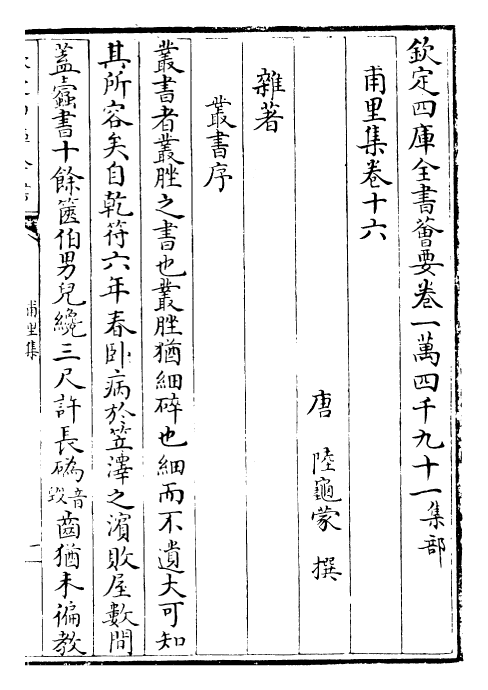 欽定四庫全書薈要卷一萬四千九十一集部
甫里集卷十六
唐 陸龜蒙 撰
雜著
叢書序
叢書者叢脞之書也叢脞猶細碎也細而不遺大可知
其所容矣自乾符六年春卧病於笠澤之濵敗屋數間
蓋蠧書十餘篋伯男兒纔三尺許長䃣音毀齒猶未徧教
甫里集
一